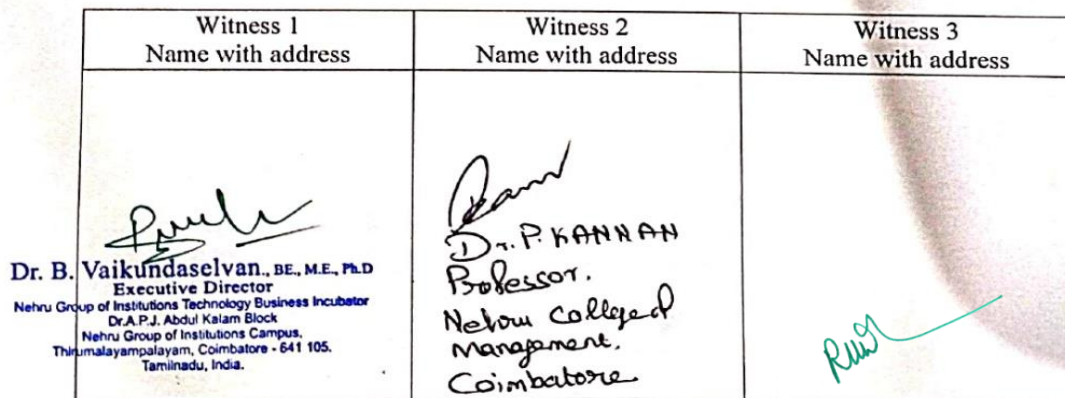 Witness 1
Name with address
Witness 2
Name with address
Witness 3
Name with address
Dr. B. Vaikundaselvan., BE., M.E., Ph.D
Executive Director
Nehru Group of Institutions Technology Business Incubator
Dr.A.P.J. Abdul Kalam Block
Nehru Group of Institutions Campus,
Thirumalayampalayam, Coimbatore - 641 105.
Tamilnadu, India.
Dr. P. KANNAN
Professor.
Nehru College of
Management.
Coimbatore